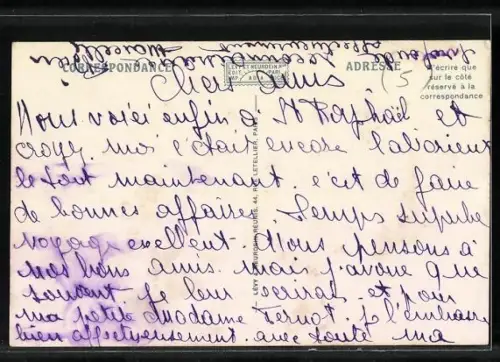 CORRESPONDANCE
LÉVY ET NEURDEIN RÉUNIS, 44, RUE LETELLIER, PARIS
ADRESSE
N'écrire que
sur le côté
réservé à la
correspondance
(5)
Chers amis
Nous voici enfin à St Raphaël et
croyez moi c'était encore laborieux
le tout maintenant c'est de faire
de bonnes affaires. Temps superbe
voyage excellent. Nous pensons à
nos bons amis. mais j'avoue que
souvent. Je leur écrirai et pour
ma petite Madame je l'embrasse
bien affectueusement. avec toute ma
profonde
affectueusement
Marcelle